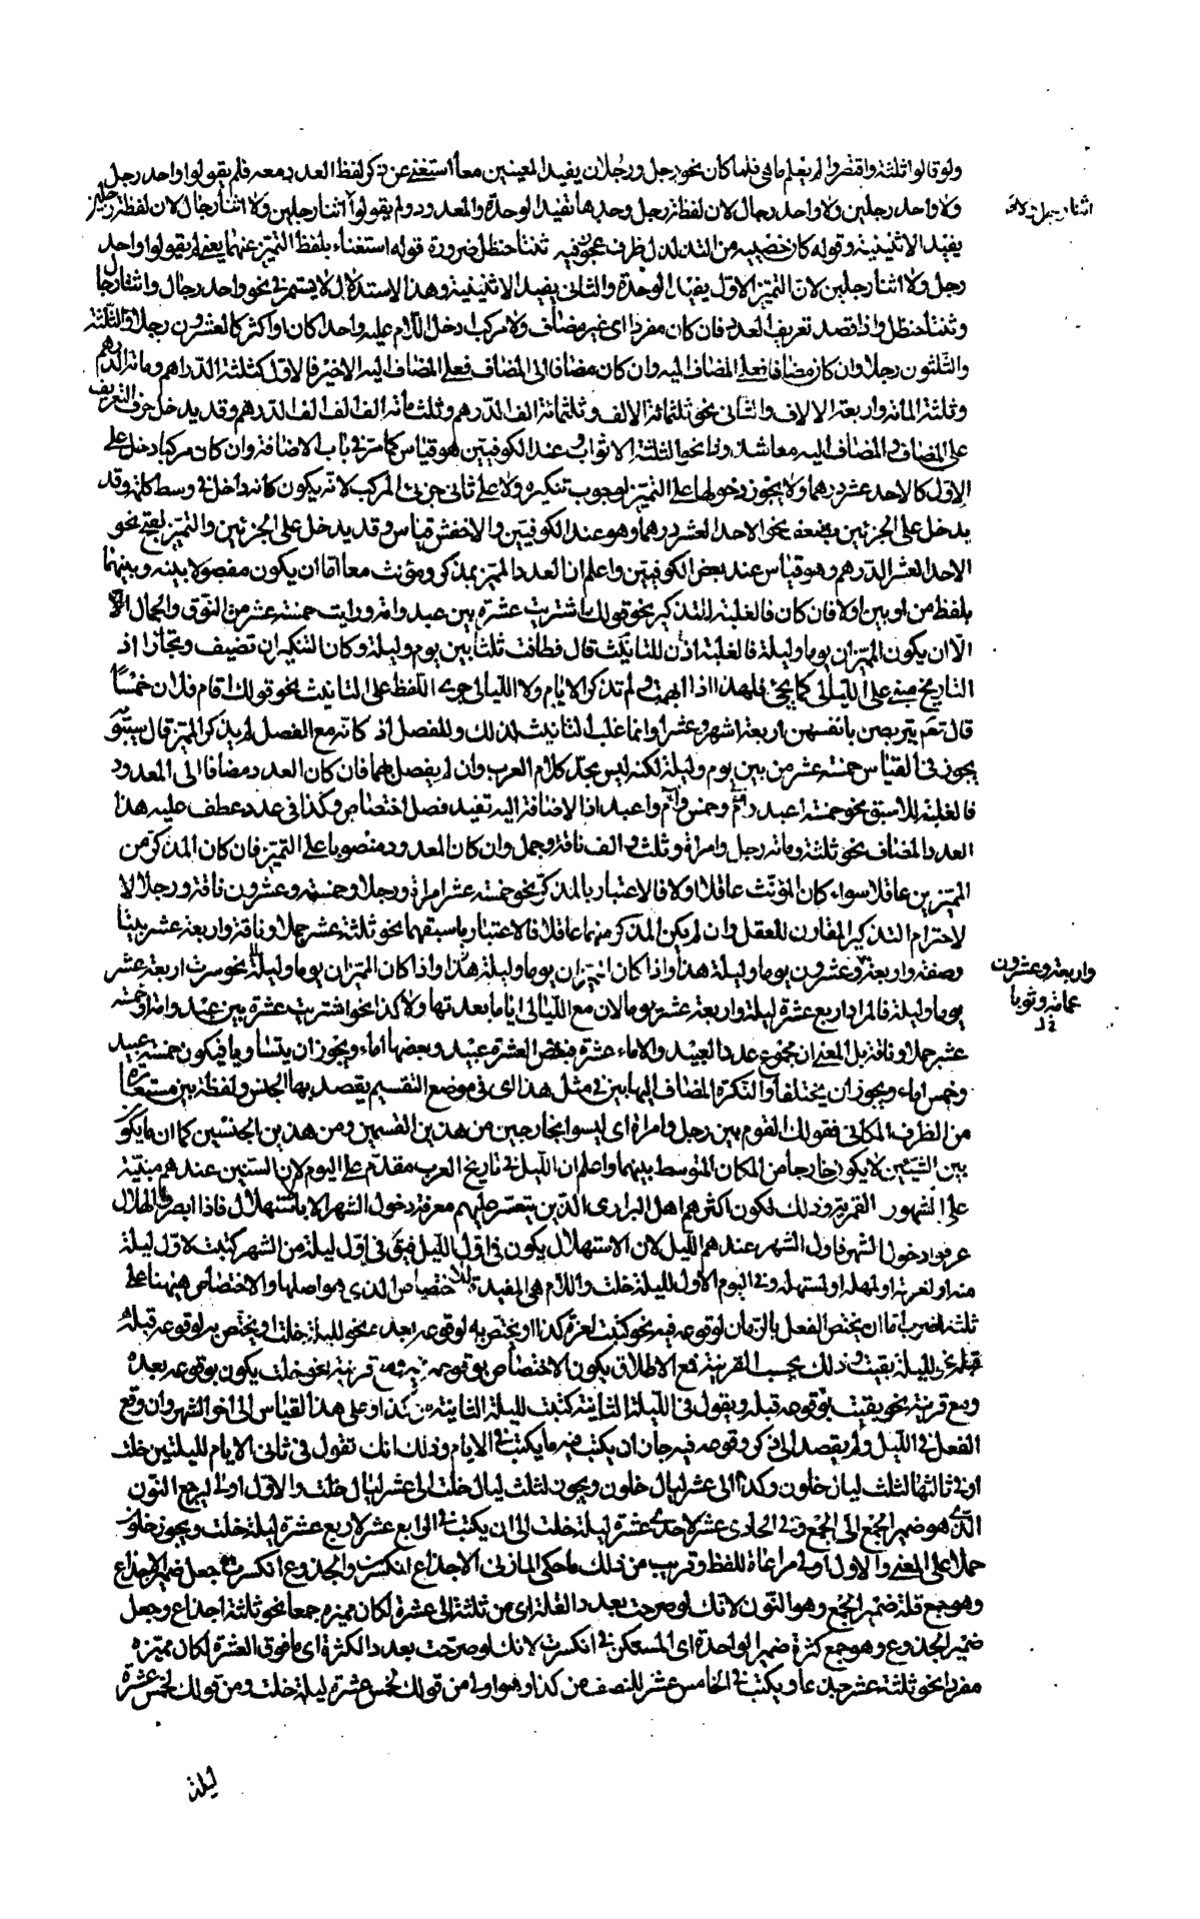 ولو قالوا ثلثة واقتصروا لم يعلم ماهي فلما كان نحو رجل ورجلان يفيد المعنيين معا استغنى عن ذكر لفظ العدد معه فلم يقولوا واحد رجل
ولا واحد رجلين ولا واحد رجال لان لفظة رجل وحدها تفيد الوحدة والمعدود ولم يقولوا اثنا رجلين ولا اثنا رجال لان لفظة رجلين
يفيد الاثنينية وقوله كان خصييه من التدلدل ظرف عجوز فيه ثنتا حنظل ضرورة قوله استغناء بلفظ التميز عنهما يعني لم يقولوا واحد
رجل ولا اثنا رجلين لان التميز الاول يفيد الوحدة والثانى يفيد الاثنينية وهذا الاستدلال لا يستمر فى نحو واحد رجال واثنا رجال
وثنتا حنظل واذا قصد تعريف العدد فان كان مفردا اى غير مضاف ولا مركب ادخل اللام عليه واحدا كان او اكثر كالعشرون رجلا والثلثة
والثلثون رجلا وان كان مضافا فعلى المضاف اليه وان كان مضافا الى المضاف فعلى المضاف اليه الاخير فالاول كثلثة الدراهم ومائة الدرهم
وثلثة المائة واربعة الالاف والثانى نحو ثلثمائة الالف وثلثمائة الف الدرهم وثلثمائة الف الف الف الدرهم وقد يدخل حرف التعريف
على المضاف والمضاف اليه معا شذوذا نحو الثلثة الاثواب وعند الكوفيين هو قياس كما مر فى باب الاضافة وان كان مركبا دخل على
الاول كالاحد عشر درهما ولا يجوز دخولها على التميز لوجوب تنكيره ولا على ثانى جزئى المركب لانه يكون كانه داخل فى وسط كلمة وقد
يدخل على الجزئين بضعف نحو الاحد العشر درهما وهو عند الكوفيين والاخفش قياس وقد يدخل على الجزئين والتميز بقبح نحو
الاحد العشر الدرهم وهو قياس عند بعض الكوفيين واعلم ان العدد المميز بمذكر ومؤنث معا اما ان يكون مفصولا بينه وبينهما
بلفظ من او بين اولا فان كان فالغلبة للتذكير نحو قولك اشتريت عشرة بين عبد وامة ورايت خمسة عشر من النوق والجمال
الا ان يكون المميزان يوما وليلة فالغلبة اذن للتانيث قال فطافت ثلثا بين يوم وليلة وكان النكير ان تضيف وتجأرا اذ
التاريخ مبنى على الليالى كما يجئ فلهذا اذا ابهمت ولم تذكر الايام ولا الليالى جرى اللفظ على التانيث نحو قولك اقام فلان خمسا
قال تعم يتربصن بانفسهن اربعة اشهر وعشرا وانما غلب التانيث لذلك وللفصل اذ كانه مع الفصل لم يذكر المميز قال سيبويه
يجوز فى القياس خمسة عشر من بين يوم وليلة لكنه ليس بحد كلام العرب وان لم يفصل بهما فان كان العدد مضافا الى المعدود
فالغلبة للاسبق نحو خمسة اعبد وآم وخمس وآم واعبد اذ الاضافة اليه تفيد فضل اختصاص وكذا فى عدد عطف عليه هذا
العدد المضاف نحو ثلثة ومائة رجل وامراة وثلث والف ناقة وجمل وان كان المعدود منصوبا على التميز فان كان المذكر من
المميزين عاقلا سواء كان المؤنث عاقلا اولا فالاعتبار بالمذكر نحو خمسة عشر امراة ورجلا وخمسة وعشرون ناقة ورجلا لا
لاحترام التذكير المقارن للعقل وان لم يكن المذكر منهما عاقلا فالاعتبار باسبقهما نحو ثلثة عشر جملا وناقة واربعة عشر بيتا
وصفة واربعة وعشرون يوما وليلة هذا واذا كان المميزان يوما وليلة نحو سرت اربعة عشر
يوما وليلة فالمراد اربع عشرة ليلة واربعة عشر يوما لان مع الليالى اياما بعدتها ولا كذا نحو اشتريت عشرة بين عبد وامة او خمسة
عشر جملا وناقة بل المعنى ان مجموع عدد العبيد والاماء عشرة فبعض العشرة عبيد وبعضها اماء ويجوز ان يتساويا فيكون خمسة عبيد
وخمس اماء ويجوز ان يختلفا والنكرة المضاف اليها بين فى مثل هذا اى فى موضع التقسيم يقصد بها الجنس ولفظة بين مستعارة
من الظرف المكانى فقولك القوم بين رجل وامراة اى ليسوا بخارجين من هذين القسمين ومن هذين الجنسين كما ان ما يكون
بين الشيئين لا يكون خارجا من المكان المتوسط بينهما واعلم ان الليل فى تاريخ العرب مقدم على اليوم لان السنين عندهم مبنية
على الشهور القمرية وذلك لكون اكثرهم اهل البرارى الذين يتعسر عليهم معرفة دخول الشهر الا بالاستهلال فاذا ابصروا الهلال
عرفوا دخول الشهر فاول الشهر عندهم الليل لان الاستهلال يكون فى اول الليل فيقال فى اول ليلة من الشهر كتبت لاول ليلة
منه او لغرته او لمهله او لمستهله وفى اليوم الاول لليلة خلت واللام هى المفيدة للاختصاص الذى هو اصلها والاختصاص ههنا على
ثلثة اضرب اما ان يختص الفعل بالزمان لوقوعه فيه نحو كتبت لغرة كذا او يختص به لوقوعه بعده نحو لليلة خلت او يختص به لوقوعه قبله
نحو لليلة بقيت وذلك بحسب القرينة فمع الاطلاق يكون الاختصاص بوقوعه فيه ومع قرينة نحو خلت يكون بوقوعه بعده
ومع قرينة نحو بقيت بوقوعه قبله ويقول فى الليلة الثانية كتبت لليلة الثانية من كذا وعلى هذا القياس الى اخر الشهر وان وقع
الفعل فى الليل ولم يقصد الى ذكر وقوعه فيه جاز ان يكتب فيه ما يكتب فى الايام وذلك انك تقول فى ثانى الايام لليلتين خلت
وفى ثالثها لثلث ليال خلون وكذا الى عشر ليال خلون ويجوز لثلث ليال خلت الى عشر ليال خلت والاول اولى ليرجع النون
الذى هو ضمير الجمع الى الجمع وفى الحادى عشر لاحدى عشرة ليلة خلت الى ان يكتب فى الرابع عشر لاربع عشرة ليلة خلت ويجوز خلون
حملا على المعنى والاول اولى مراعاة للفظ وقريب من ذلك ما حكى المازنى الاجذاع انكسرن والجذوع انكسرت جعل ضمير الاجذاع
وهو جمع قلة ضمير الجمع وهو النون لانك لو صرحت بعدد القلة اى من ثلثة الى عشرة لكان مميزه جمعا نحو ثلثة اجذاع وجعل
ضمير الجذوع وهو جمع كثرة ضمير الواحدة اى المستكن فى انكسرت لانك لو صرحت بعدد الكثرة اى ما فوق العشرة لكان مميزه
مفردا نحو ثلثة عشر جذعا ويكتب فى الخامس عشر للنصف من كذا وهو اولى من قولك لخمس عشرة ليلة خلت ومن قولك لخمس عشرة
ليلة
واربعة وعشرون
عمامة وثوبا